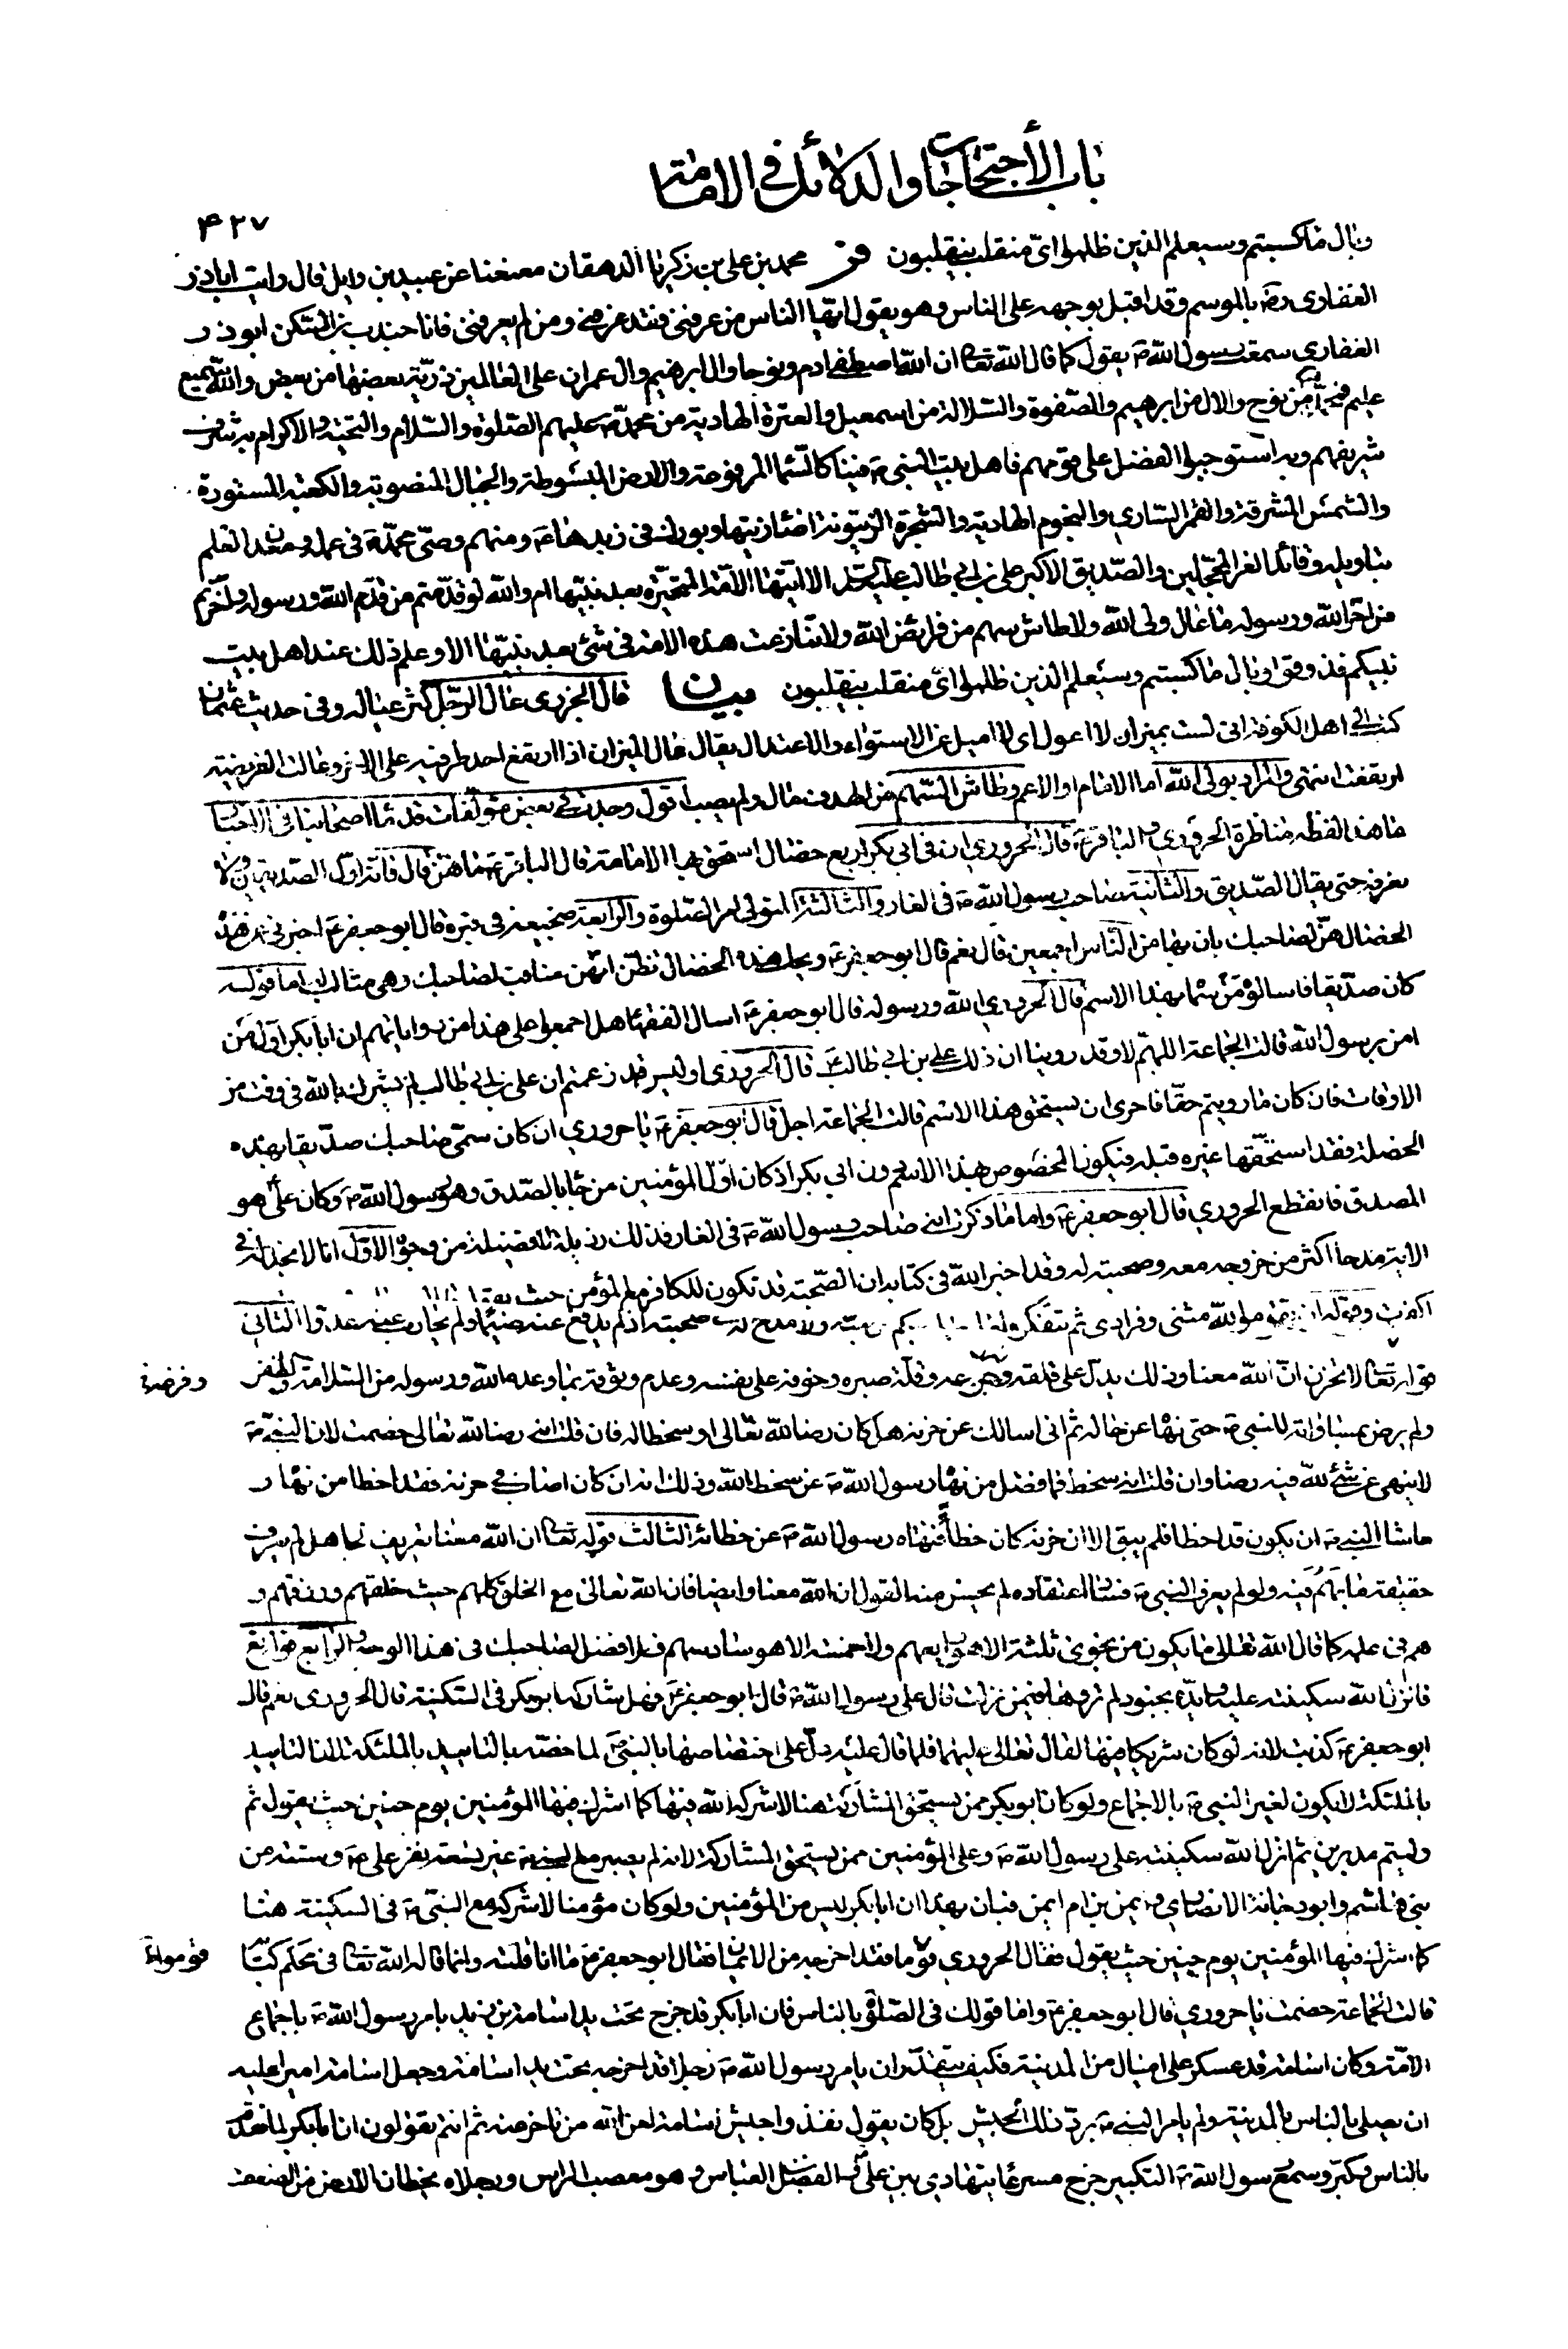 باب الأحتجاجات والدلائل في الامامة
۴۲۷
وبال ما كسبتم وسيعلم الذين ظلموا اىّ منقلب ينقلبون فر محمد بن على بن زكريا الدهقان معنعنا عن عبيد بن وايل قال رايت اباذر
الغفارى رضه بالموسم وقد اقبل بوجهه على الناس وهو يقول ايّها الناس من عرفنى فقد عرفنى ومن لم يعرفنى فانا جندب بن السكن ابوذر
الغفارى سمعت رسول الله ص يقول كما قال الله تعا ان الله اصطفى ادم ونوحا وال ابرهيم وال عمران على العالمين ذريّة بعضها من بعض والله سميع
عليم فمحمّد ص من نوح والال من ابرهيم والصّفوة والسّلالة من اسمعيل والعترة الهادية من محمّد ص عليهم الصّلوة والسّلام والتحيّة والاكرام به شرف
شريفهم وبه استوجبوا الفضل على قومهم فاهل بيت النبى ص فينا كالسّماء المرفوعة والارض المبسوطة والجبال المنصوبة والكعبة المستورة
والشمس المشرقة والقمر السّارى والنجوم الهادية والشجرة الزيتونة اضاء زيتها وبورك فى زبدها ع ومنهم وصىّ محمّد ص فى علمه ومعدن العلم
بتاويله وقائد الغر المحجّلين والصّديق الاكبر على بن ابى طالب عليه السلم الا ايّتها الامّة المتحيّرة بعد نبيّها ام والله لو قدّمتم من قدّم الله ورسوله واخّرتم
من اخّر الله ورسوله ما عال ولى الله ولا طاش سهم من فرائض الله ولا تنازعت هذه الامة فى شئ بعد نبيّها الا وعلم ذلك عند اهل بيت
نبيكم فذوقوا وبال ما كسبتم وسيعلم الذين ظلموا اىّ منقلب ينقلبون بيان قال الجزرى عال الرّجل كثر عياله وفى حديث عثمان
كتب الى اهل الكوفة انى لست بميزان لا اعول اى لا اميل عن الاستواء والاعتدال يقال عال الميزان اذا ارتفع احد طرفيه على الاخر وعالت الفريضة
ارتفعت انتهى والمراد بولى الله اما الامام او الاعم وطاش السّهم عن الهدف مال ولم يصبه اقول وجدت فى بعض مؤلّفات قدماء اصحابنا فى الاخبار
ما هذا لفظه مناظرة الحرورى والباقر ع قال الحرورى ان فى ابى بكر اربع خصال استحق بها الامامة قال الباقر ع ما هنّ قال فانه اوّل الصّديقين ولا
نعرفه حتى يقال الصّديق والثانية صاحب رسول الله ص فى الغار والثالثة المتولى امر الصّلوة والرابعة ضجيعه فى قبره قال ابوجعفر ع اخبرنى عن هذه
الخصال هنّ لصاحبك بان بها من الناس اجمعين قال نعم قال ابوجعفر ع ويحك هذه الخصال تظنّ انهنّ مناقب لصاحبك وهى مثالب له اما قوله
كان صدّيقا فاسألوه من سمّاه بهذا الاسم قال الحرورى الله ورسوله قال ابوجعفر ع اسال الفقهاء هل اجمعوا على هذا من رواياتهم ان ابابكر اوّل من
امن برسول الله قالت الجماعة اللهمّ لا وقد روينا ان ذلك على بن ابى طالب ع قال الحرورى اوليس قد زعمتم ان على بن ابى طالب لم يشرك بالله فى وقت من
الاوقات فان كان ما رويتم حقّا فاحرى ان يستحق هذا الاسم قالت الجماعة اجل قال ابوجعفر ع يا حرورى ان كان سمّى صاحبك صدّيقا بهذه
الخصلة فقد استحقّتها غيره قبله فيكون المخصوص بهذا الاسم دون ابى بكر اذ كان اوّل المؤمنين من جاء بالصّدق وهو رسول الله ص وكان علىّ هو
المصدق فانقطع الحرورى قال ابوجعفر ع واما ما ذكرت انه صاحب رسول الله ص فى الغار فذلك رذيلة لا فضيلة من وجوه الاوّل انا لا نجد له فى
الاية مدحا اكثر من خروجه معه وصحبته له وقد اخبر الله فى كتابه ان الصّحبة قد تكون للكافر مع المؤمن حيث
مثنى وفرادى ثم تتفكروا ولا مدح له فى صحبته اذ لم يدفع عنه ضيما ولم يحارب عنه عدوّا الثانى
قوله تعا لا تحزن انّ الله معنا وذلك يدلّ على قلقه وضرعه وقلّة صبره وخوفه على نفسه وعدم وثوقه بما وعده الله ورسوله من السّلامة والظفر
ولم يرض بمساواته للنبى ص حتى نهاه عن حاله ثم انى اسالك عن حزنه هل كان رضا لله تعالى او سخطا له فان قلت انه رضا لله تعالى خصمت لان النبى ص
لا ينهى عن شئ لله فيه رضا وان قلت انه سخط فما فضل من نهاه رسول الله ص عن سخط الله وذلك انه ان كان اصاب فى حزنه فقد اخطا من نهاه
حاشا النبى ص ان يكون قد اخطا فلم يبق الا ان حزنه كان خطأ فنهاه رسول الله ص عن خطائه الثالث قوله تعا ان الله معنا تعريف لجاهل لم يعرف
حقيقة ما هم فيه ولو لم يعرف النبى ص فساد اعتقاده لم يحسن منه القول ان الله معنا وايضا فان الله تعالى مع الخلق كلهم حيث خلقهم ورزقهم و
هم فى علمه كما قال الله تعالى ما يكون من نجوى ثلثة الا هو رابعهم ولا خمسة الا هو سادسهم فلا فضل لصاحبك فى هذا الوجه والرابع قوله تع
فانزل الله سكينته عليه وايّده بجنود لم تروها فيمن نزلت قال على رسول الله ص قال ابوجعفر ع فهل شاركه ابوبكر فى السّكينة قال الحرورى نعم قال
ابوجعفر ع كذبت لانه لو كان شريكا فيها لقال تعالى عليهما فلما قال عليه دلّ على اختصاصها بالنبى ص لما خصّه بالتاييد بالملئكة لان التاييد
بالملئكة لا يكون لغير النبى ص بالاجماع ولو كان ابوبكر ممن يستحق المشاركة هنا لاشركه الله فيها كما اشرك فيها المؤمنين يوم حنين حيث يقول ثم
وليتم مدبرين ثم انزل الله سكينته على رسول الله ص وعلى المؤمنين ممن يستحق المشاركة لانه لم يصبر مع النبى ص غير تسعة نفر على ع وستة من
بنى هاشم وابودجانة الانصارى وايمن بن ام ايمن فبان بهذا ان ابابكر ليس من المؤمنين ولو كان مؤمنا لاشركه مع النبىّ ص فى السكينة هنا
كما اشرك فيها المؤمنين يوم حنين حيث يقول فقال الحرورى قوما فقد اخرجه من الايمان فقال ابوجعفر ع ما انا قلته وانما قاله الله تعا فى محكم كتابه
قالت الجماعة خصمت يا حرورى قال ابوجعفر ع واما قولك فى الصّلوة بالناس فان ابابكر قد خرج تحت يد اسامة بن زيد بامر رسول الله ص باجماع
الامّة وكان اسامة قد عسكر على اميال من المدينة فكيف يتقدّر ان يامر رسول الله ص رجلا قد اخرجه تحت يد اسامة وجعل اسامة اميرا عليه
ان يصلى بالناس بالمدينة ولم يامر النبى ص بردّ ذلك الجيش بل كان يقول نفذوا جيش اسامة لعن الله من تاخر عنه ثم انتم تقولون ان ابابكر لما تقدّم
بالناس وكبّر وسمع رسول الله ص التكبير خرج مسرعا يتهادى بين علىّ والفضل بن العباس وهو معصب الراس ورجلاه يخطان الارض من الضعف
وفرضه
قوموا